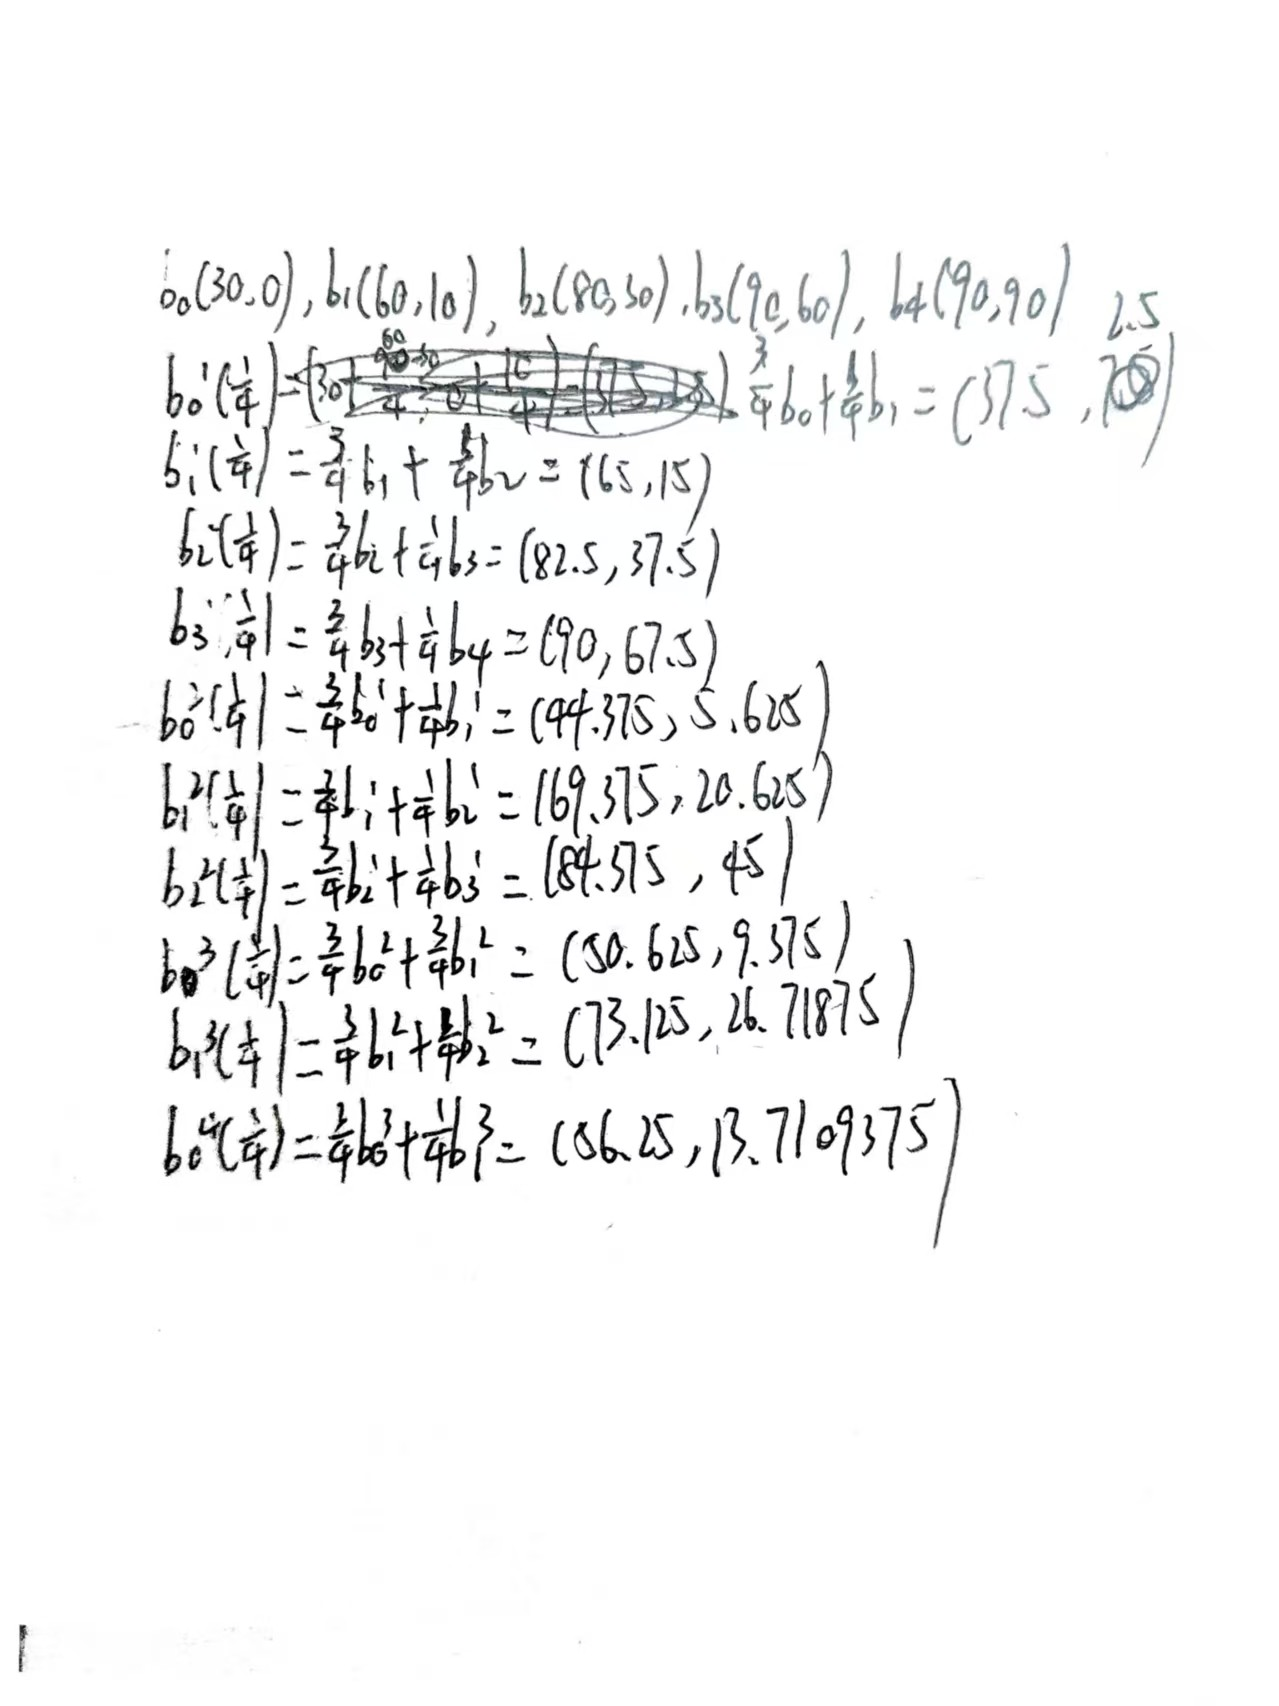 b₀(30,0), b₁(60,10), b₂(80,30), b₃(90,60), b₄(90,90)
b₀¹(1/4) = 3/4b₀ + 1/4b₁ = (37.5, 2.5)
b₁¹(1/4) = 3/4b₁ + 1/4b₂ = (65, 15)
b₂¹(1/4) = 3/4b₂ + 1/4b₃ = (82.5, 37.5)
b₃¹(1/4) = 3/4b₃ + 1/4b₄ = (90, 67.5)
b₀²(1/4) = 3/4b₀¹ + 1/4b₁¹ = (44.375, 5.625)
b₁²(1/4) = 3/4b₁¹ + 1/4b₂¹ = (69.375, 20.625)
b₂²(1/4) = 3/4b₂¹ + 1/4b₃¹ = (84.375, 45)
b₀³(1/4) = 3/4b₀² + 3/4b₁² = (50.625, 9.375)
b₁³(1/4) = 3/4b₁² + 1/4b₂² = (73.125, 26.71875)
b₀⁴(1/4) = 3/4b₀³ + 1/4b₁³ = (56.25, 13.7109375)